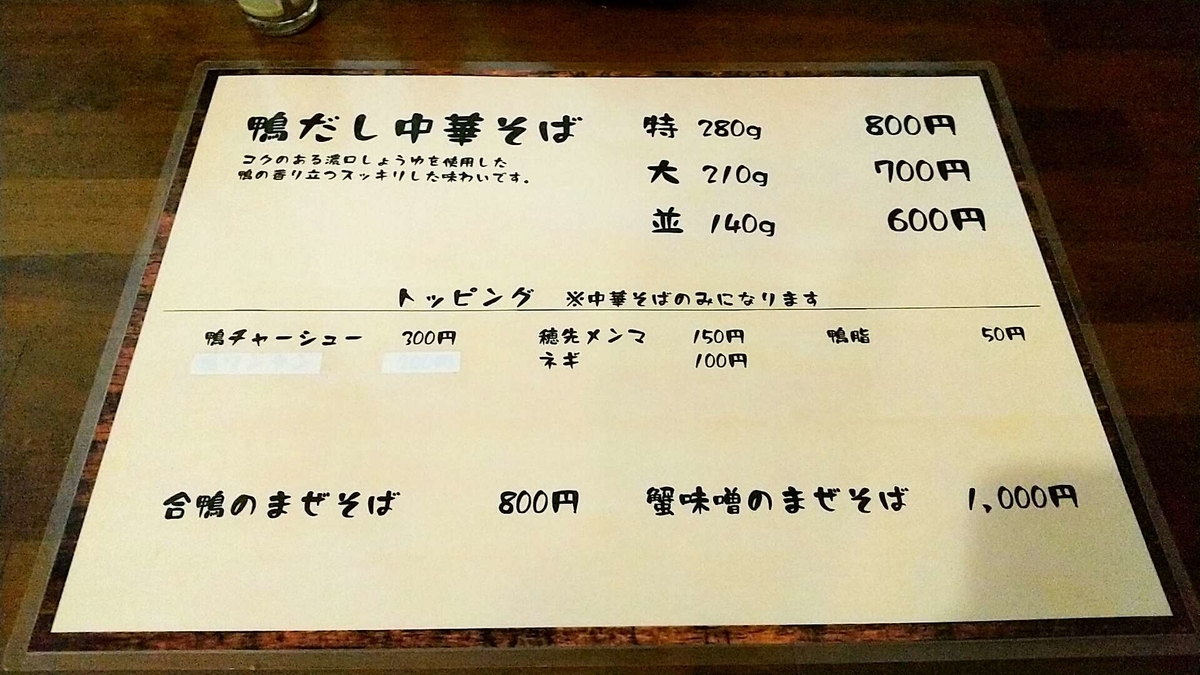 鴨だし中華そば
コクのある濃口しょうゆを使用した
鴨の香り立つスッキリした味わいです。
特 280g 800円
大 210g 700円
並 140g 600円
トッピング ※中華そばのみになります
鴨チャーシュー 300円 穂先メンマ 150円 鴨脂 50円
ネギ 100円
合鴨のまぜそば 800円 蟹味噌のまぜそば 1,000円